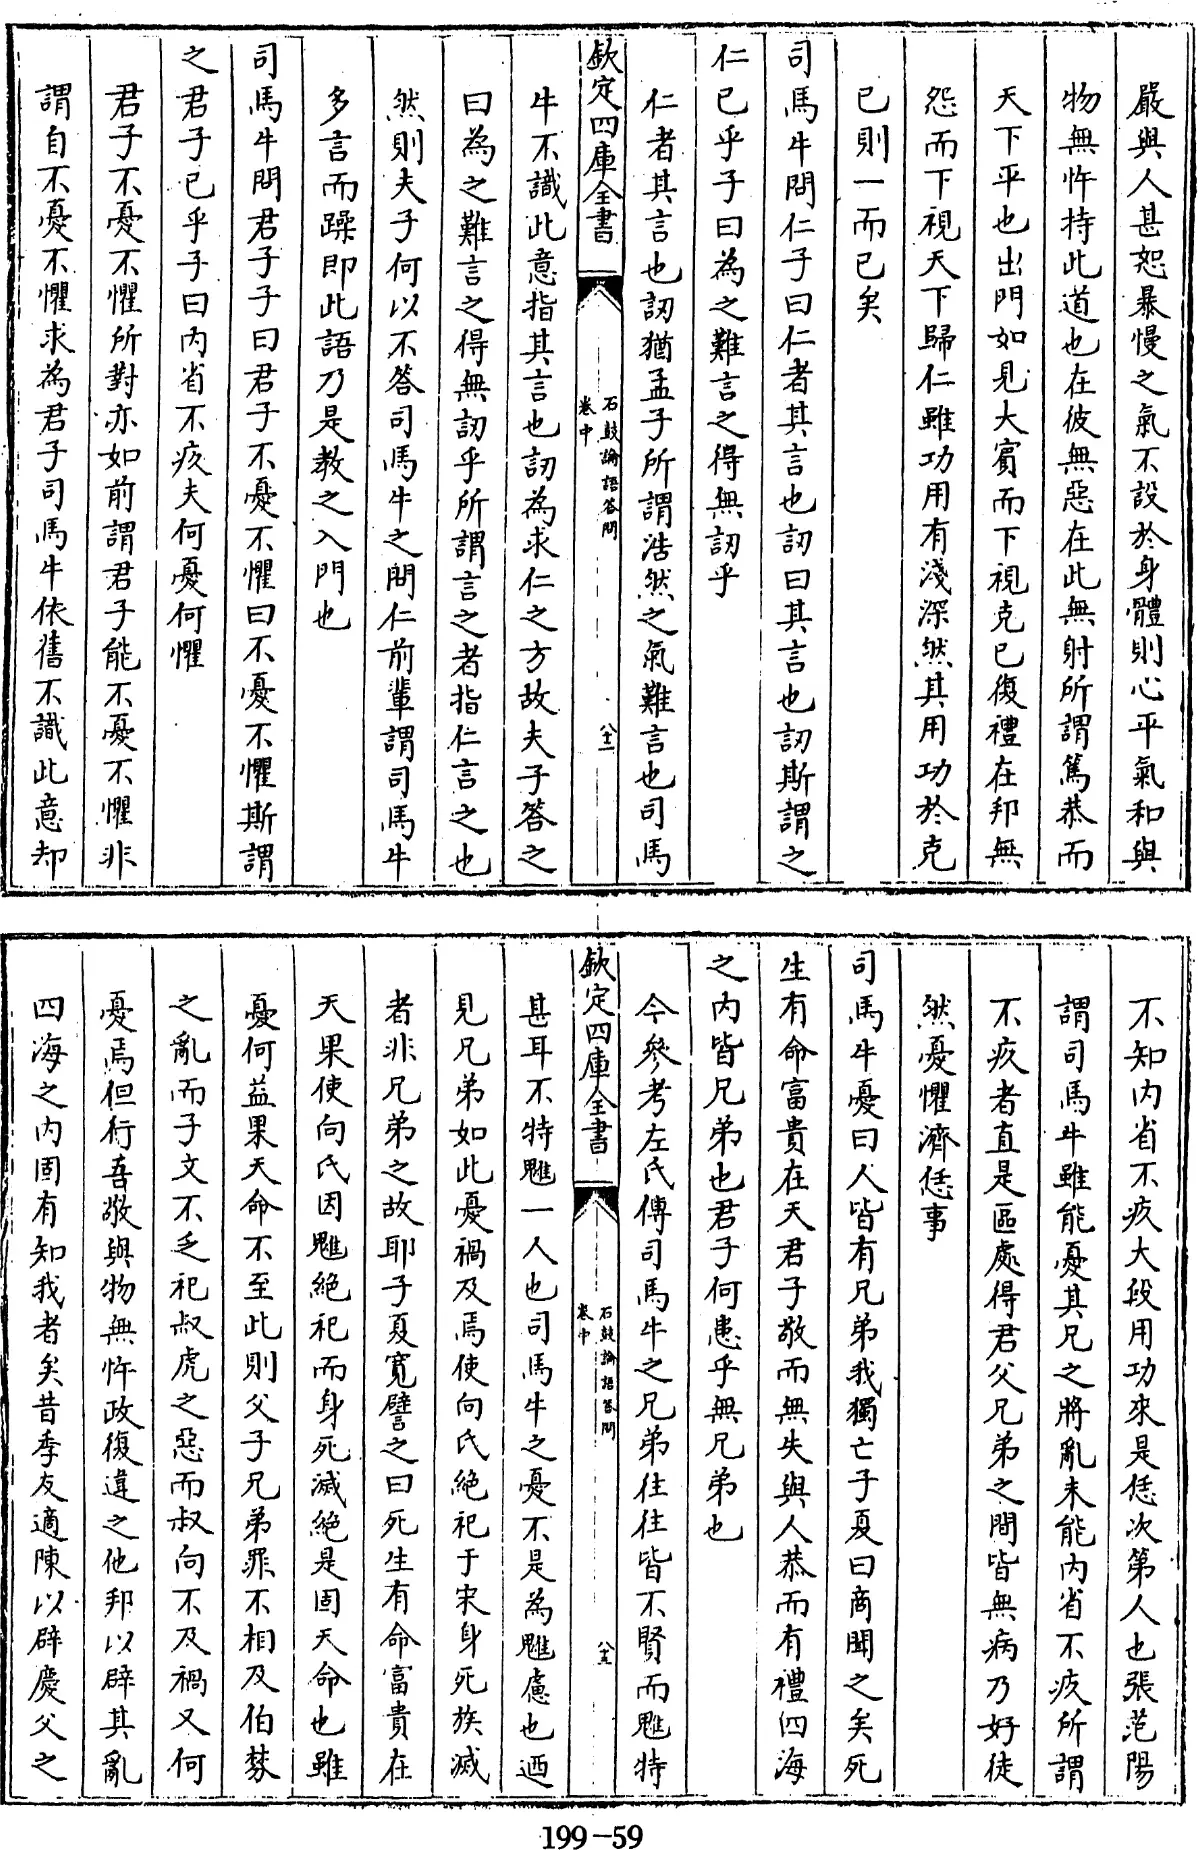 嚴與人甚恕暴慢之氣不設於身體則心平氣和與
物無忤持此道也在彼無惡在此無射所謂篤恭而
天下平也出門如見大賓而下視克己復禮在邦無
怨而下視天下歸仁雖功用有淺深然其用功於克
已則一而已矣
司馬牛問仁子曰仁者其言也訒曰其言也訒斯謂之
仁已乎子曰為之難言之得無訒乎
仁者其言也訒猶孟子所謂浩然之氣難言也司馬
欽定四庫全書
石鼓論語答問
卷中
牛不識此意指其言也訒為求仁之方故夫子答之
曰為之難言之得無訒乎所謂言之者指仁言之也
然則夫子何以不答司馬牛之問仁前輩謂司馬牛
多言而躁即此語乃是教之入門也
司馬牛問君子子曰君子不憂不懼曰不憂不懼斯謂
之君子已乎子曰内省不疚夫何憂何懼
君子不憂不懼所對亦如前謂君子能不憂不懼非
謂自不憂不懼求為君子司馬牛依舊不識此意却
不知内省不疚大段用功來是恁次第人也張范陽
謂司馬牛雖能憂其兄之將亂未能内省不疚所謂
不疚者直是區處得君父兄弟之間皆無病乃好徒
然憂懼濟恁事
司馬牛憂曰人皆有兄弟我獨亡子夏曰商聞之矣死
生有命富貴在天君子敬而無失與人恭而有禮四海
之内皆兄弟也君子何患乎無兄弟也
今參考左氏傳司馬牛之兄弟往往皆不賢而魋特
欽定四庫全書
石鼓論語答問
卷中
甚耳不特魋一人也司馬牛之憂不是為魋慮也迺
見兄弟如此憂禍及焉使向氏絶祀于宋身死族滅
者非兄弟之故耶子夏寬譬之曰死生有命富貴在
天果使向氏因魋絶祀而身死滅絶是固天命也雖
憂何益果天命不至此則父子兄弟罪不相及伯棼
之亂而子文不乏祀叔虎之惡而叔向不及禍又何
憂焉但行吾敬與物無忤政復違之他邦以辟其亂
四海之内固有知我者矣昔季友適陳以辟慶父之
199-59